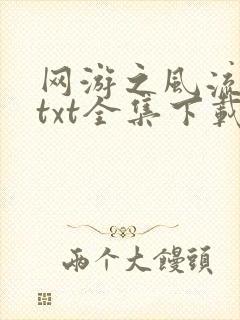 网游之风流
txt全集下载
两个大馒头